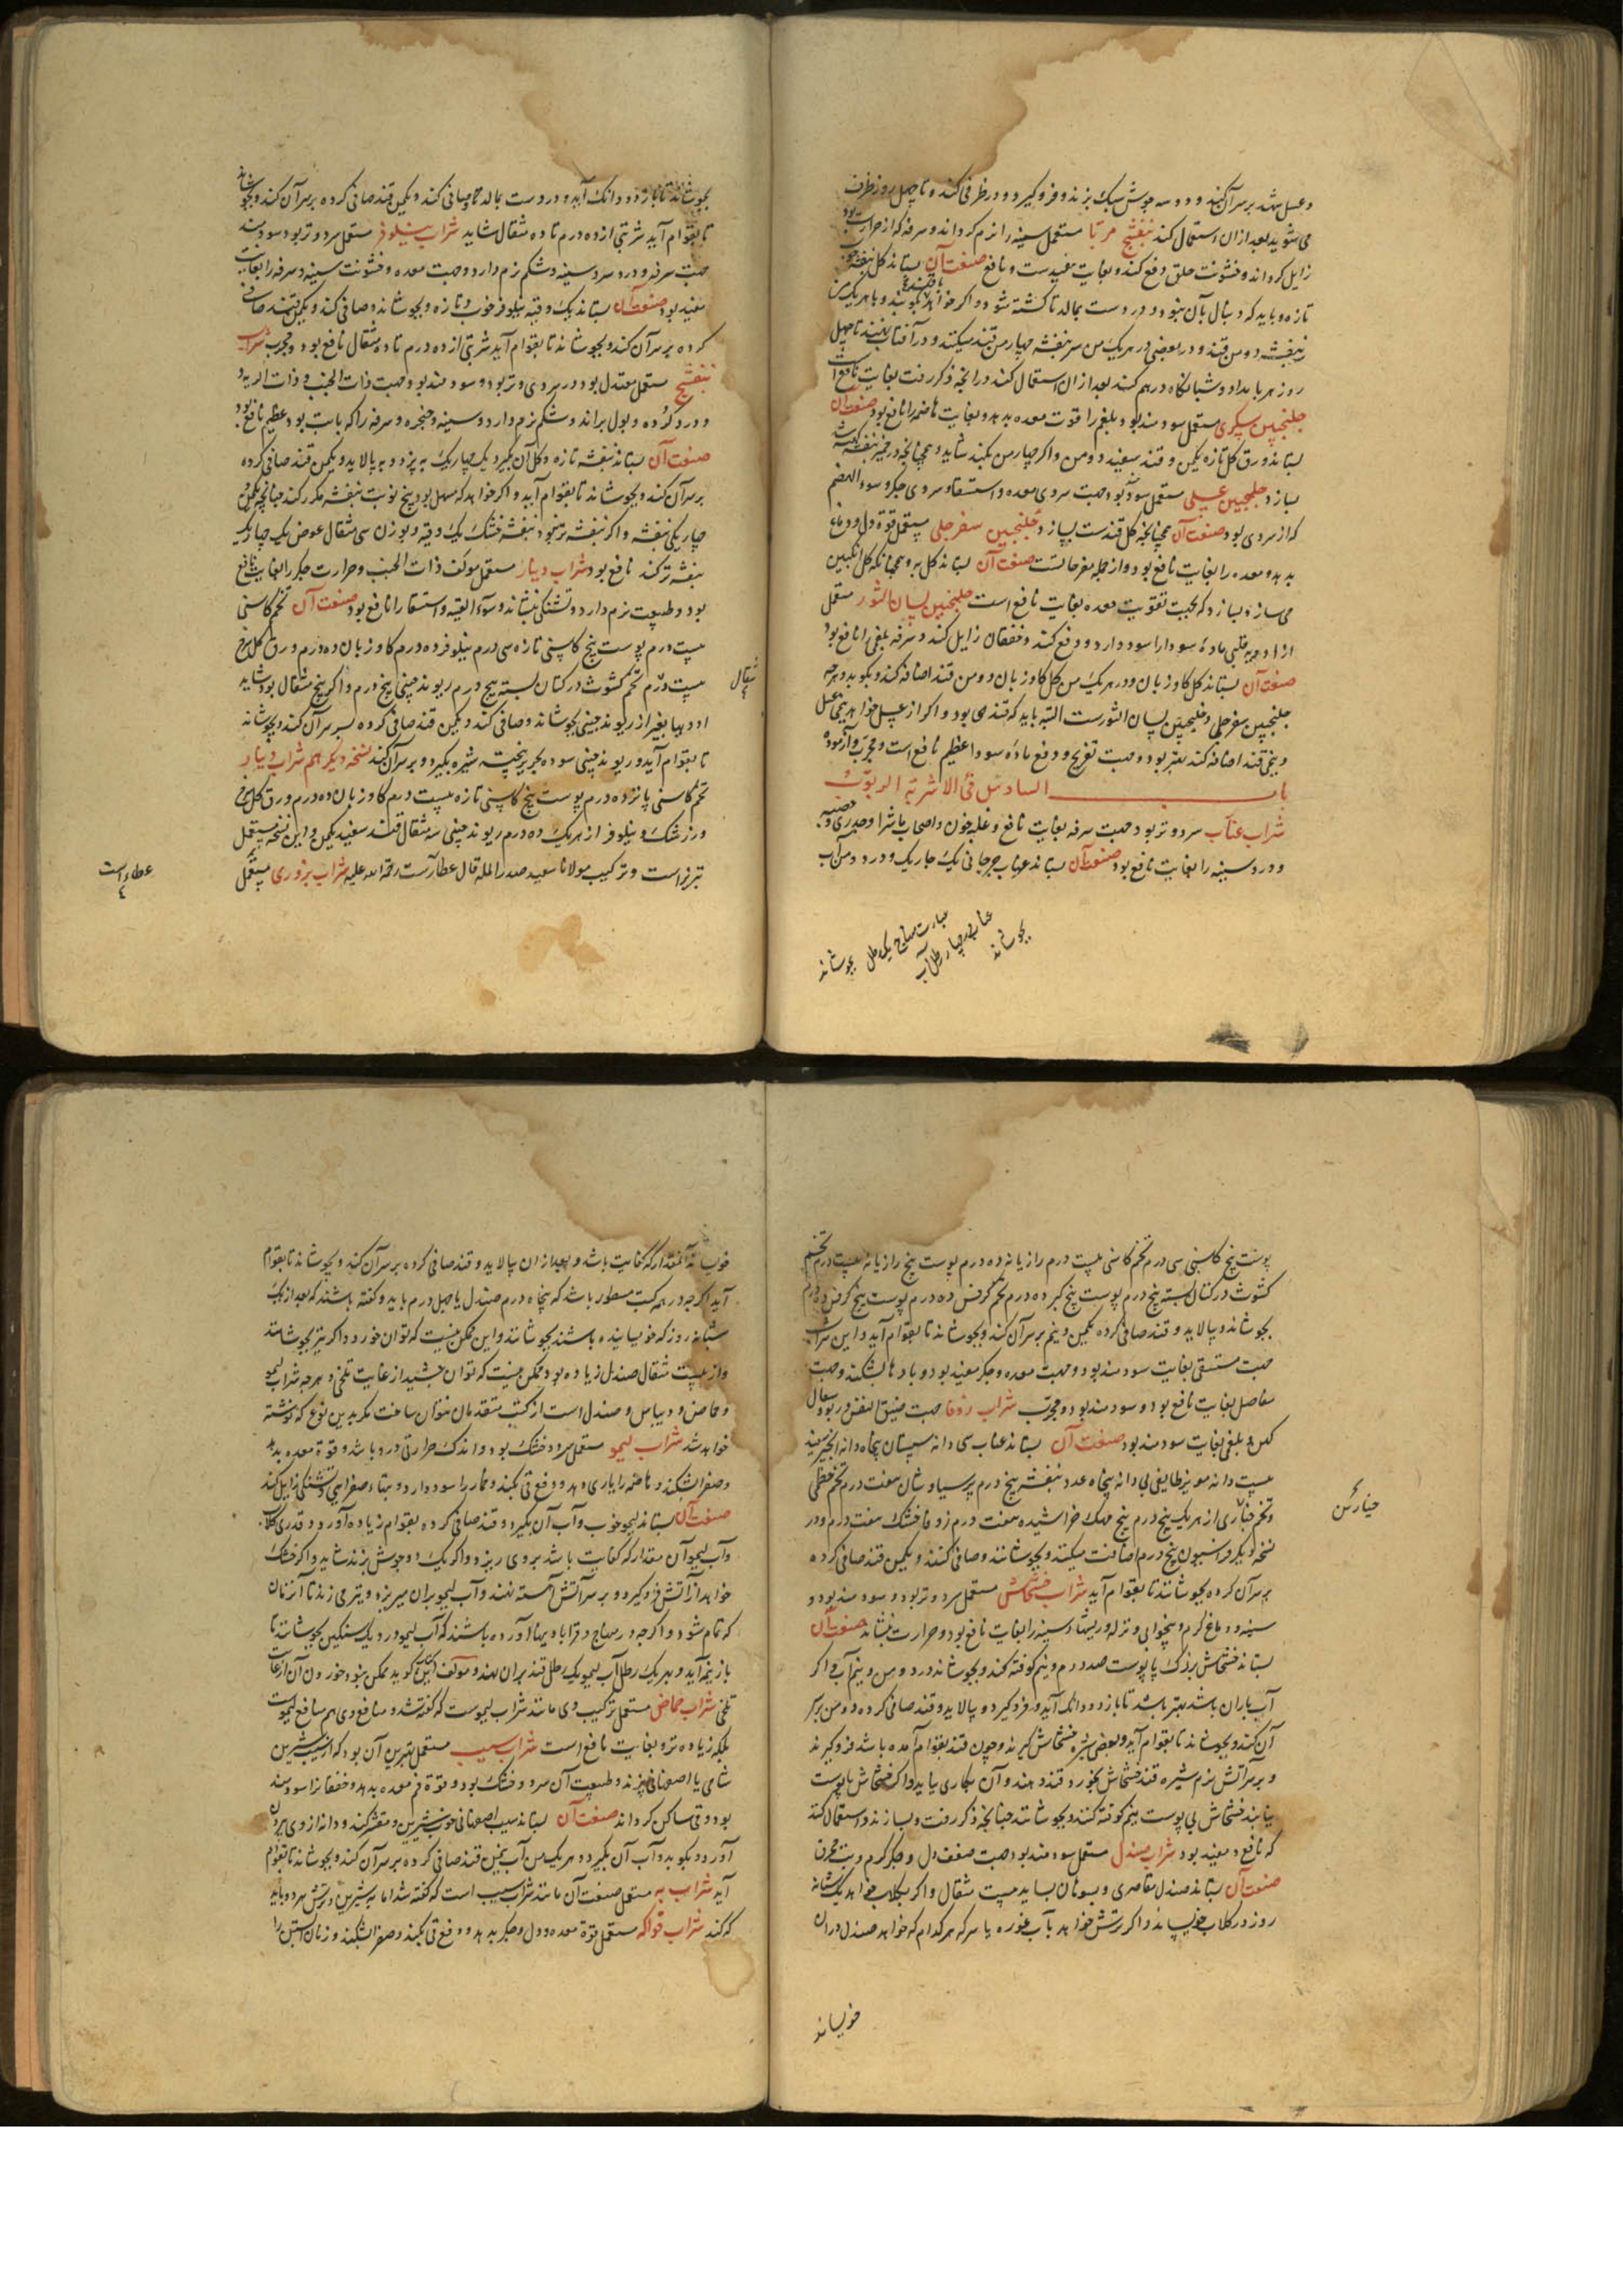 و عسل بر سر آن کنند و دو سه جوش سبک بزند و فرو گیرد و در ظرفی کند و تا چهل روز ظرف
می شوید بعد از ان استعمال کند بنفشج مربا مستعمل سینه را نرم گرداند و سرفه که از حرارت بود
زایل گرداند و خشونت حلق دفع کند و بغایت مفیدست و نافع صنعت آن بستاند گل بنفشه
تازه و باید که دنبال بآن نبود و در دست بمالد تا کشته شود و اگر خواهد بکوبند و با هر یک من
بنفشه دو من قند و در بعضی در هر یک من سر بنفشه چهار من قند میکنند و در آفتاب نهند تا چهل
روز هر بامداد و شبانگاه در هم کنند بعد از ان استعمال کنند در انچه ذکر رفت بغایت نافع است
جلنجبین سکری مستعمل سودمند بود و بلغم را قوت معده بدهد و بغایت هاضمه را نافع بود صنعت آن
بستاند ورق گل تازه یکمن و قند سفید دو من و اگر چهار من بکنند شاید و همچنانچه در خمیر بنفشه گفته شد
بسازد جلنجبین عسلی مستعمل سود بود جهت سردی معده و استسقا و سردی جگر و سوء الهضم
که از سردی بود صنعت آن همچنانچه گل قندست بسازد جلنجبین سفرجلی مستعمل قوة دل و دماغ
بدهد و معده را بغایت نافع بود و از جمله مفرحاتست صنعت آن بستاند گل به و همچنانکه گل انگبین
می سازد بسازد که بجهت تقویت معده بغایت نافع است جلنجبین لسان الثور مستعمل
از ادویه قلبی مادۀ سودا را سود دارد و دفع کند و خفقان زایل کند و سرفه بلغمی را نافع بود
صنعت آن بستاند گل گاو زبان و در هر یک من گل گاو زبان دو من قند اضافه کند و بکوبد و هر چه
جلنجبین سفرجلی و جلنجبین لسان الثورست البته باید که قندی بود و اگر از عسل خواهد نیمی عسل
و نیمی قند اضافه کند بهتر بود و جهت تفریح و دفع مادۀ سودا عظیم نافع است و مجرب و آزموده
باب السادس فی الاشربة الربوب
شراب عناب سرد و تر بود جهت سرفه بغایت نافع و غلبه خون و اصحاب ماشرا و جدری و حصبه
و درد سینه را بغایت نافع بود صنعت آن بستاند عناب جرجانی یک چاریک و در دو من آب
بجوشاند
بجوشاند تا باز دو دانک آید و در دست بمالد و صافی کند و یکمن قند صافی کرده بر سر آن کند و بجوشاند
تا بقوام آید شربتی از ده درم تا ده مثقال شاید شراب نیلوفر مستعمل سرد و تر بود سودمند
جهت سرفه و درد سر و سینه و شکم نرم دارد و جهت معده و خشونت سینه و سرفه را بغایت
مفید بود صنعت آن بستاند یک وقیه نیلوفر خوب و تازه و بجوشاند و صافی کند و یکمن قند صافی
کرده بر سر آن کند و بجوشاند تا بقوام آید شربتی از ده درم تا ده مثقال نافع بود و مجرب شراب
بنفشج مستعمل معتدل بود در سردی و تر بود و سودمند بود جهت ذات الجنب و ذات الریه و
درد گرده و بول براند و شکم نرم دارد و سینه و حنجره و سرفه را که با تب بود عظیم نافع بود
صنعت آن بستاند بنفشه تازه و گل آن بگیرد یک چاریک بپزد و بپالاید و یکمن قند صافی کرده
بر سر آن کند و بجوشاند تا بقوام آید و اگر خواهد که مسهل بود پنج نوبت بنفشه مکرر کند چنانچه یکمن و
چاریکی بنفشه و اگر بنفشه تر نبود بنفشه خشک یک وقیه و بوزن سی مثقال عوض یک چاریک
بنفشه تر کند نافع بود شراب دینار مستعمل موکف ذات الجنب و حرارت جگر را بغایت نافع
بود و طبیعت نرم دارد و تشنگی بنشاند و سوء القنیه و استسقا را نافع بود صنعت آن تخم کاسنی
بیست درم پوست بیخ کاسنی تازه سی درم نیلوفر ده درم گاو زبان ده درم ورق گل سرخ
بیست درم تخم کشوث در کتان بسته پنج درم ریوند چینی پنج درم و اگر پنج مثقال بود شاید
ادویها بغیر از ریوند چینی بجوشاند و صافی کند و یکمن قند صافی کرده بر سر آن کند و بجوشاند
تا بقوام آید و ریوند چینی سوده بحریر بیخته شیره بگیرد و بر سر آن کند نسخه دیگر هم شراب دینار
تخم کاسنی پانزده درم پوست بیخ کاسنی تازه بیست درم گاو زبان ده درم ورق گل سرخ
و زرشک و نیلوفر از هر یک ده درم ریوند چینی سه مثقال قند سفید یکمن و این نسخه مستعمل
تبریز است و ترکیب مولانا سعید صدر المله قال عطار است رحمة الله علیه شراب بزوری مستعمل
مثقال
عطار است
پوست بیخ کاسنی سی درم تخم کاسنی بیست درم رازیانه ده درم پوست بیخ رازیانه بیست درم تخم
کشوث در کتان بسته پنج درم پوست بیخ کبر ده درم تخم کرفس ده درم پوست بیخ کرفس ده درم
بجوشاند و بپالاید و قند صافی کرده یکمن و نیم بر سر آن کند و بجوشاند تا بقوام آید و این شراب
جهت مستسقی بغایت سودمند بود و جهت معده و جگر مفید بود و بادها بشکند و جهت
مفاصل بغایت نافع بود و سودمند بود و مجرب شراب زوفا جهت ضیق النفس و ربو و سعال
کهن و بلغمی بغایت سودمند بود صنعت آن بستاند عناب سی دانه سپستان پنجاه دانه انجیر سفید
بیست دانه مویز طایفی بی دانه پنجاه عدد بنفشه پنج درم پرسیاوشان هفت درم تخم خطمی
و تخم خبازی از هر یک پنج درم بیخ مهک خراشیده هفت درم زوفا خشک هفت درم و در
نسخه دیگر فراسیون پنج درم اضافت میکنند و بجوشانند و صافی کنند و یکمن قند صافی کرده
بر سر آن کرده بجوشانند تا بقوام آید شراب خشخاش مستعمل سرد و تر بود و سودمند بود و
سینه و دماغ گرم و بیخوابی و نزله و ریشهاء سینه را بغایت نافع بود و حرارت بنشاند صنعت آن
بستاند خشخاش بزرگ با پوست صد درم و نیم کوفته کند و بجوشاند در دو من و نیم آب و اگر
آب باران باشد بهتر باشد تا باز دو دانک آید و فرو گیرد و بپالاید و قند صافی کرده دو من بر سر
آن کند و بجوشاند تا بقوام آید و بعضی شیره خشخاش گیرند و چون قند بقوام آمده باشد فرو گیرند
و بر سر آتش نرم شیره قند خشخاش بخورد قند دهند و آن بکاری یابد و اگر خشخاش با پوست
نیابند خشخاش بی پوست نیم کوفته کنند و بجوشانند چنانچه ذکر رفت و بسازند و استعمال کنند
که نافع و مفید بود شراب صندل مستعمل سودمند بود جهت ضعف دل و جگر گرم و تب محرق
صنعت آن بستاند صندل مقاصری و بسوهان بساید بیست مثقال و اگر بگلاب خواهد یک شبانه
روز در گلاب خویساند و اگر ترش خواهد بآب غوره یا سرکه هر کدام که خواهد صندل در ان
خویساند
خیارین
خویساند آنمقدار که کفایت باشد و بعد از ان بپالاید و قند صافی کرده بر سر آن کند و بجوشاند تا بقوام
آید اگر چه در همه کتب مسطور باشد که پنجاه درم صندل یا چهل درم باید و گفته باشند که بعد از یک
شبانه روز که خویسانیده باشند بجوشانند و این ممکن نیست که توان خورد و اگر نیز بجوشانند
و از بیست مثقال صندل زیاده بود ممکن نیست که توان چشید از غایت تلخی و هر چه شراب لیمو
و حماض و ریباس و صندل است از کتب متقدمان نتوان ساخت مگر بدین نوع که نوشته
خواهد شد شراب لیمو مستعمل سرد و خشک بود و اندک حرارتی درو باشد و قوة معده بدهد
و صفرا بشکند و هاضمه را یاری دهد و دفع قی بکند و خمار را سود دارد و تبهاء صفرایی و تشنگی زایل کند
صنعت آن بستاند لیمو خوب و آب آن بگیرد و قند صافی کرده بقوام زیاده آورد و قدری گلاب
و آب لیمو آن مقدار که کفایت باشد بر وی ریزد و اگر یک دو جوش بزند شاید و اگر خشک
خواهد از آتش فرو گیرد و بر سر آتش آهسته نهند و آب لیمو بر ان میریزد و بتبر می زند تا آن زمان
که تمام شود و اگر چه در منهاج و قراباذینها آورده باشند که آب لیمو در دیک سنگین بجوشانند تا
باز نیمه آید و بهر یک رطل آب لیمو یک رطل قند بر ان نهند و مولف این کتاب گوید ممکن نبود خوردن آن از غایت
تلخی شراب حماض مستعمل ترکیب وی مانند شراب لیموست که گفته شد و منافع وی هم منافع لیموست
بلکه زیاده تر و بغایت نافع است شراب سیب مستعمل بهترین آن بود که از سیب شیرین
شامی یا اصفهانی پزند و طبیعت آن سرد و خشک بود و قوة فم معده بدهد و خفقان را سودمند
بود و قی ساکن گرداند صنعت آن بستاند سیب اصفهانی خوب شیرین و مقشر کند و دانه از وی بیرون
آورد و بکوبد و آب آن بگیرد و هر یک من آب نیم من قند صافی کرده بر سر آن کند و بجوشاند تا بقوام
آید شراب به مستعمل صنعت آن مانند شراب سیب است که گفته شد اما به شیرین و ترش هر دو باید
که کند شراب فواکه مستعمل قوة معده و دل و جگر بدهد و دفع قی بکند و صفرا بشکند و زنان آبستن را